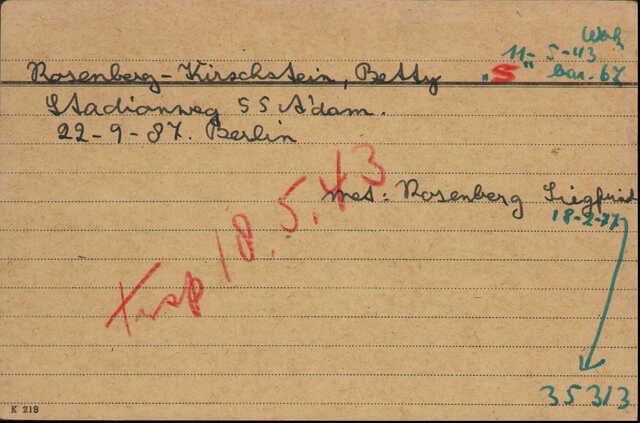 Wob
11-5-43
Rosenberg-Kirschstein, Betty „S" bar. 67
Stadionweg 55 A'dam.
22-9-87. Berlin
met: Rosenberg Siegfried
18-2-77
Trsp 18.5.43
35313
K 219